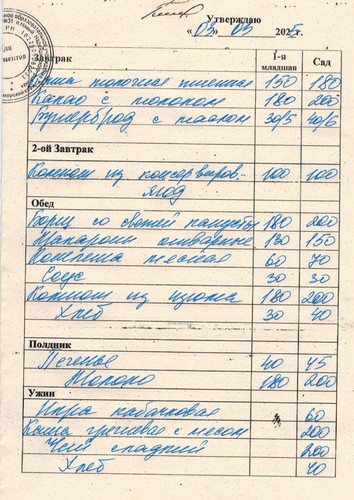 Утверждаю
« 03 » 03 2025г.
Завтрак 1-я младшая Сад
Каша молочная пшенная 150 180
Какао с молоком 180 200
Бутерброд с маслом 30/5 40/6
2-ой Завтрак
Компот из консервиров. 100 100
ягод
Обед
Борщ со свежей капусты 180 200
Макароны отварные 130 150
Котлета мясная 60 70
Соус 30 30
Компот из изюма 180 200
Хлеб 30 40
Полдник
Печенье 40 45
Молоко 180 200
Ужин
Икра кабачковая 60
Каша гречневая с мясом 200
Чай сладкий 200
Хлеб 40